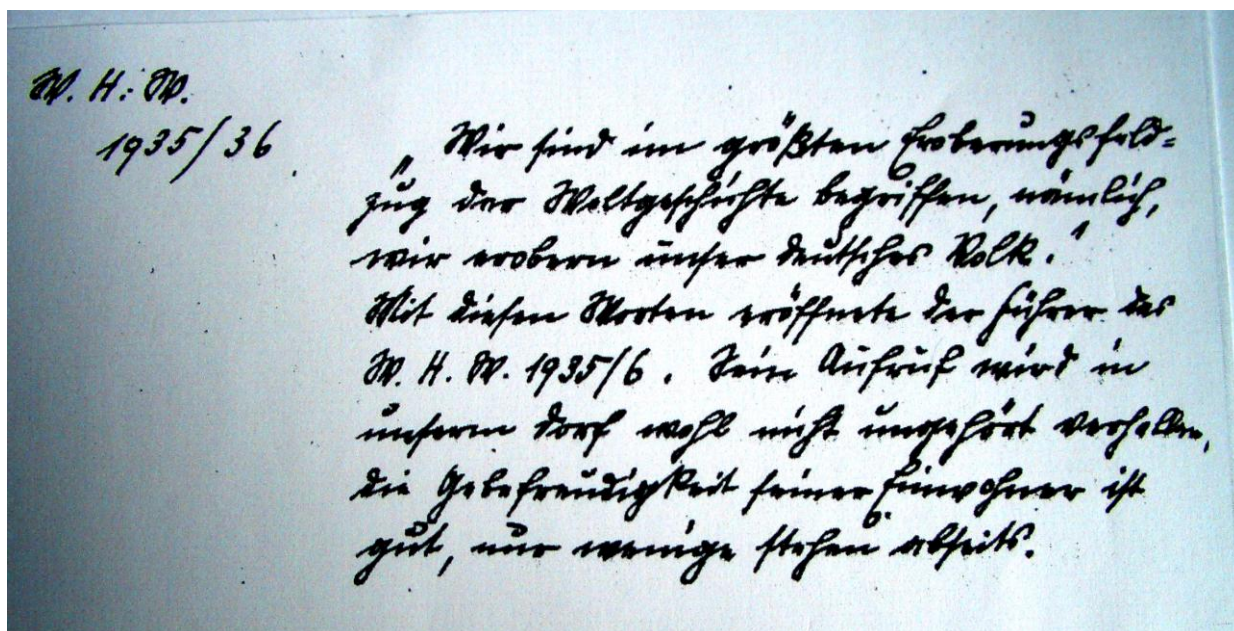 W. H. W.
1935/36
„Wir sind im größten Eroberungsfeld=
zug der Weltgeschichte begriffen, nämlich,
wir erobern unser deutsches Volk."
Mit diesen Worten eröffnete der Führer das
W. H. W. 1935/6. Sein Aufruf wird in
unserm Dorf wohl nicht ungehört verhallen,
die Gebefreudigkeit seiner Einwohner ist
gut, nur wenige stehen abseits.